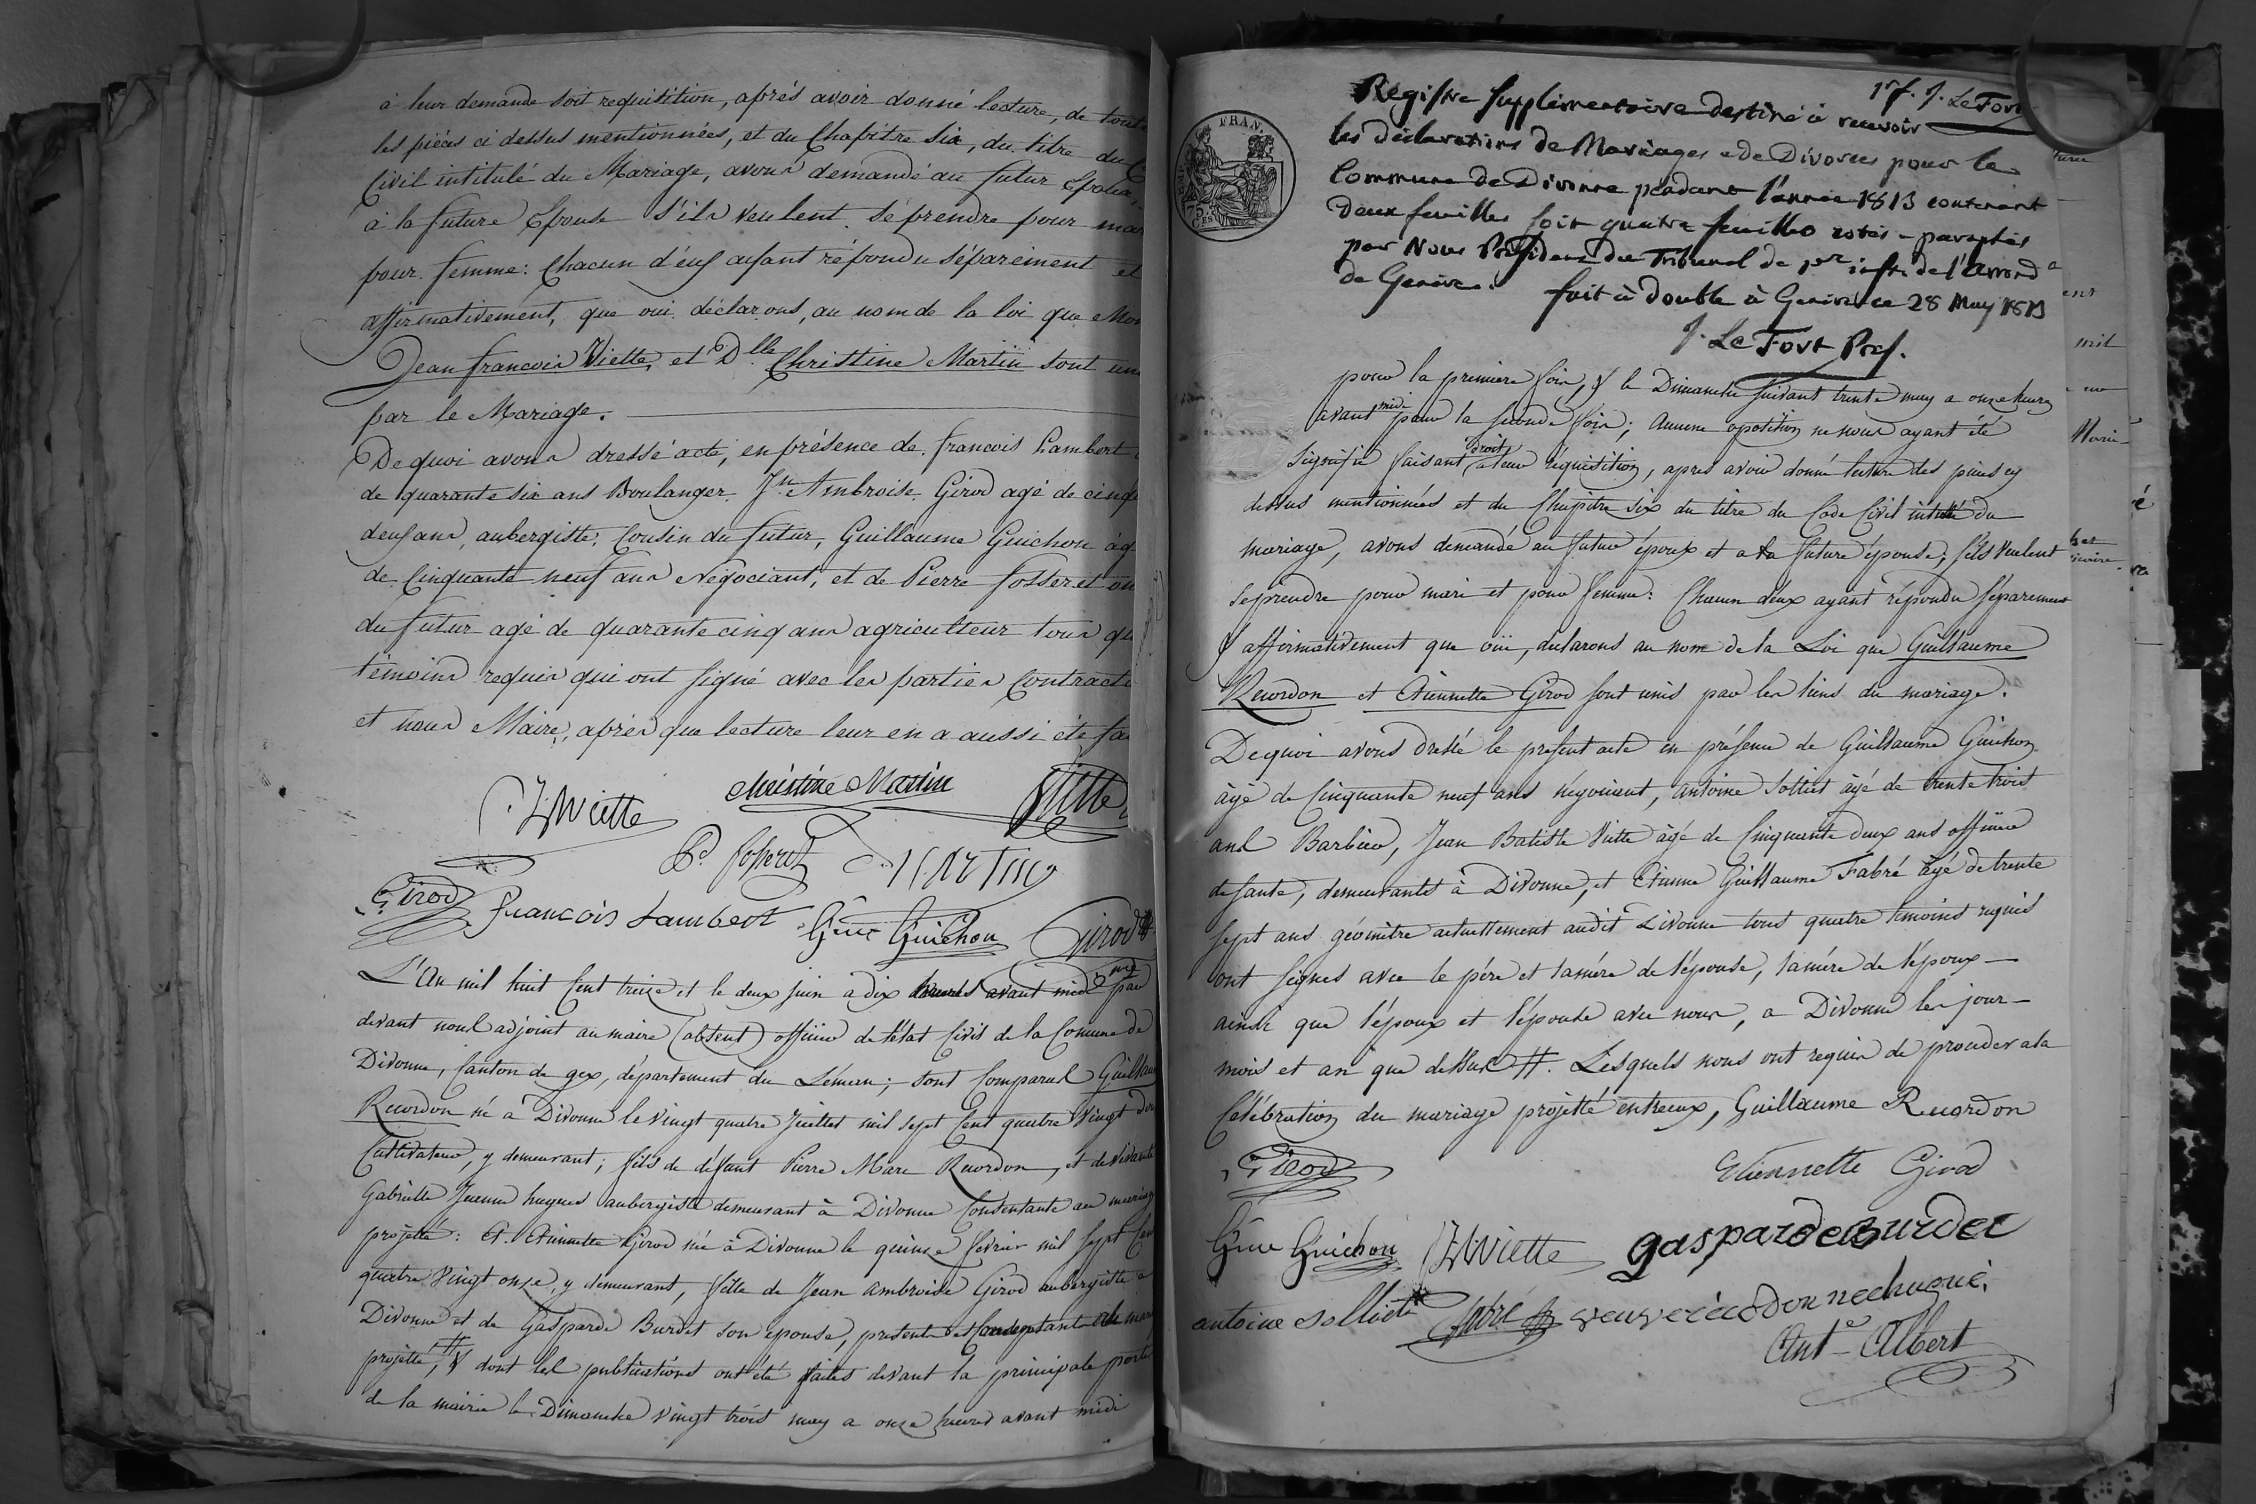 à leur demande soit requisition, aprés avoir donné lecture, de tout
les piéces ci dessus mentionnées, et du Chapitre Six, du titre du C
Civil intitulé du Mariage, avons demandé au futur Epoux,
à la future Epouse S'ils veulent se prendre pour mar
pour femme: Chacun d'eux ayant répondu séparément et
affirmativement, que oui déclarons, au nom de la loi que Mon
Jean francois Viette, et Dlle Christine Martin sont un
par le Mariage.
De quoi avons dressé acte, en présence de francois Lambert
de quarante six ans Boulanger. Jn Ambroise Girod agé de cinq
deux ans, aubergiste, Cousin du futur, Guillaume Guichon ag
de Cinquante neuf ans Négociant, et de Pierre fosseret on
du futur agé de quarante cinq ans agriculteur tous qu
témoins requis qui ont signé avec les parties Contracta
et nous Maire, après que lecture leur en a aussi été fa
JB Viette christine Martin Viette
Pre fosseret Martin
Girod francois Lambert Gme Guichon Girod
L'An mil huit Cent treize et le deux juin a dix heures avant midi par
devant nous adjoint au maire (absent) officier de l'état Civil de la Comune de
Divonne, Canton de gex, département du Léman; sont Comparus Guillau
Recordon né à Divonne le vingt quatre Juillet mil sept Cent quatre vingt
Cultivateur, y demeurant; fils de défunt Pierre Marc Recordon, et de vivante
Gabrielle Jeanne hugues aubergiste demeurant à Divonne Consentante au mariag
projetté: Et Etiennette Girod née à Divonne le quinze février mil sept Cent
quatre vingt onze, y demeurant, fille de Jean Ambroise Girod aubergiste a
Divonne et de Gasparde Burdet son épouse, présents et Consentants au mar
projetté, # & dont les publications ont été faites devant la principale porte
de la mairie le Dimanche vingt trois may a onze heures avant midi
17. J. Le Fort
Registre Supplémentaire destiné à recevoir
les déclarations de Mariages & de Divorces pour la
Commune de Divonne pendant l'année 1813 contenant
deux feuilles soit quatre feuillets cotés & paraphés
par Nous Président du Tribunal de 1er inst. de l'Arrond
de Genève. fait à double à Genève ce 28 May 1813
J. Le Fort Pres.
FRAN.
pour la premiere fois, & le Dimanche suivant trente may a onze heures
avant midi pour la seconde fois; Aucune oposition ne nous ayant été
signifiée faisant droit a leur réquisition, apres avoir donné lecture des pieces cy
dessus mentionnées et du Chapitre six du titre du Code Civil intitulé du
mariage, avons demandé au futur époux et a la future épouse, s'ils veulent
se prendre pour mari et pour femme: Chacun deux ayant répondu séparement
& affirmativement que oüi, déclarons au nom de la Loi que Guillaume
Recordon et Etiennette Girod sont unis par les liens du mariage.
De quoi avons dressé le présent acte en présence de Guillaume Guichon
âgé de Cinquante neuf ans négociant, Antoine Solliet âgé de trente trois
ans Barbier, Jean Batiste Viette âgé de Cinquante deux ans officier
de santé, demeurants à Divonne, et Etienne Guillaume Fabré âgé de trente
sept ans géomètre actuellement audit Divonne tous quatre témoins requis
ont signés avec le père et la mère de l'épouse, la mère de l'époux
ainsi que l'époux et l'épouse avec nous, a Divonne les jour
mois et an que dessus #. Lesquels nous ont requis de proceder a la
Célébration du mariage projetté entreux, Guillaume Recordon
Girod Etiennette Girod
Gme Guichon JB Viette gasparde Burdet
antoine solliet fabré veuve récordon née hugué.
Ante Albert